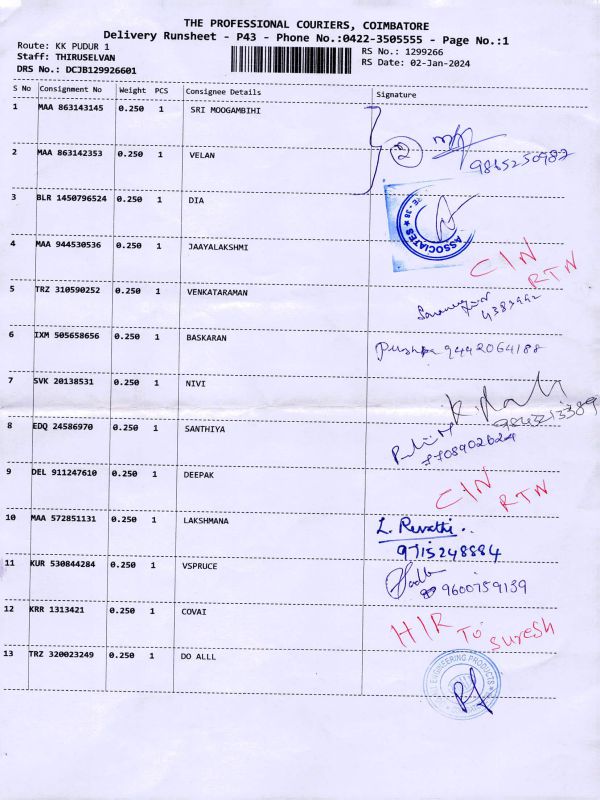 THE PROFESSIONAL COURIERS, COIMBATORE
Delivery Runsheet - P43 - Phone No.:0422-3505555 - Page No.:1
Route: KK PUDUR 1
RS No.: 1299266
Staff: THIRUSELVAN
RS Date: 02-Jan-2024
DRS No.: DCJB129926601
S No Consignment No Weight PCS Consignee Details Signature
1 MAA 863143145 0.250 1 SRI MOOGAMBIHI
2
2 MAA 863142353 0.250 1 VELAN
3 BLR 1450796524 0.250 1 DIA
ASSOCIATES
4 MAA 944530536 0.250 1 JAAYALAKSHMI C/N RTN
5 TRZ 310590252 0.250 1 VENKATARAMAN
6 IXM 505658656 0.250 1 BASKARAN Pushpa 9442064188
7 SVK 20138531 0.250 1 NIVI
8 EDQ 24586970 0.250 1 SANTHIYA
9 DEL 911247610 0.250 1 DEEPAK C/N RTN
10 MAA 572851131 0.250 1 LAKSHMANA L. Revathi..
9715248884
11 KUR 530844284 0.250 1 VSPRUCE 9600759139
12 KRR 1313421 0.250 1 COVAI H/R TO SURESH
13 TRZ 320023249 0.250 1 DO ALLL ENGINEERING PRODUCTS